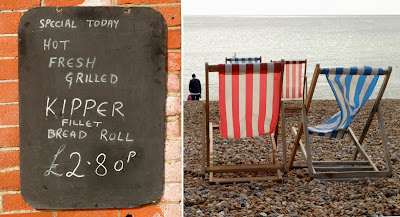 SPECIAL TODAY
HOT
FRESH
GRILLED
KIPPER
FILLET
BREAD ROLL
£2.80P